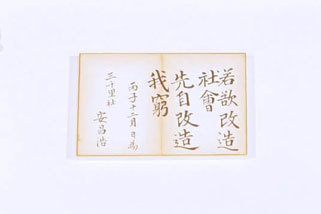 若欲改造
社會
先自改造
我窮
丙子十二月日爲
三千里社
安昌浩